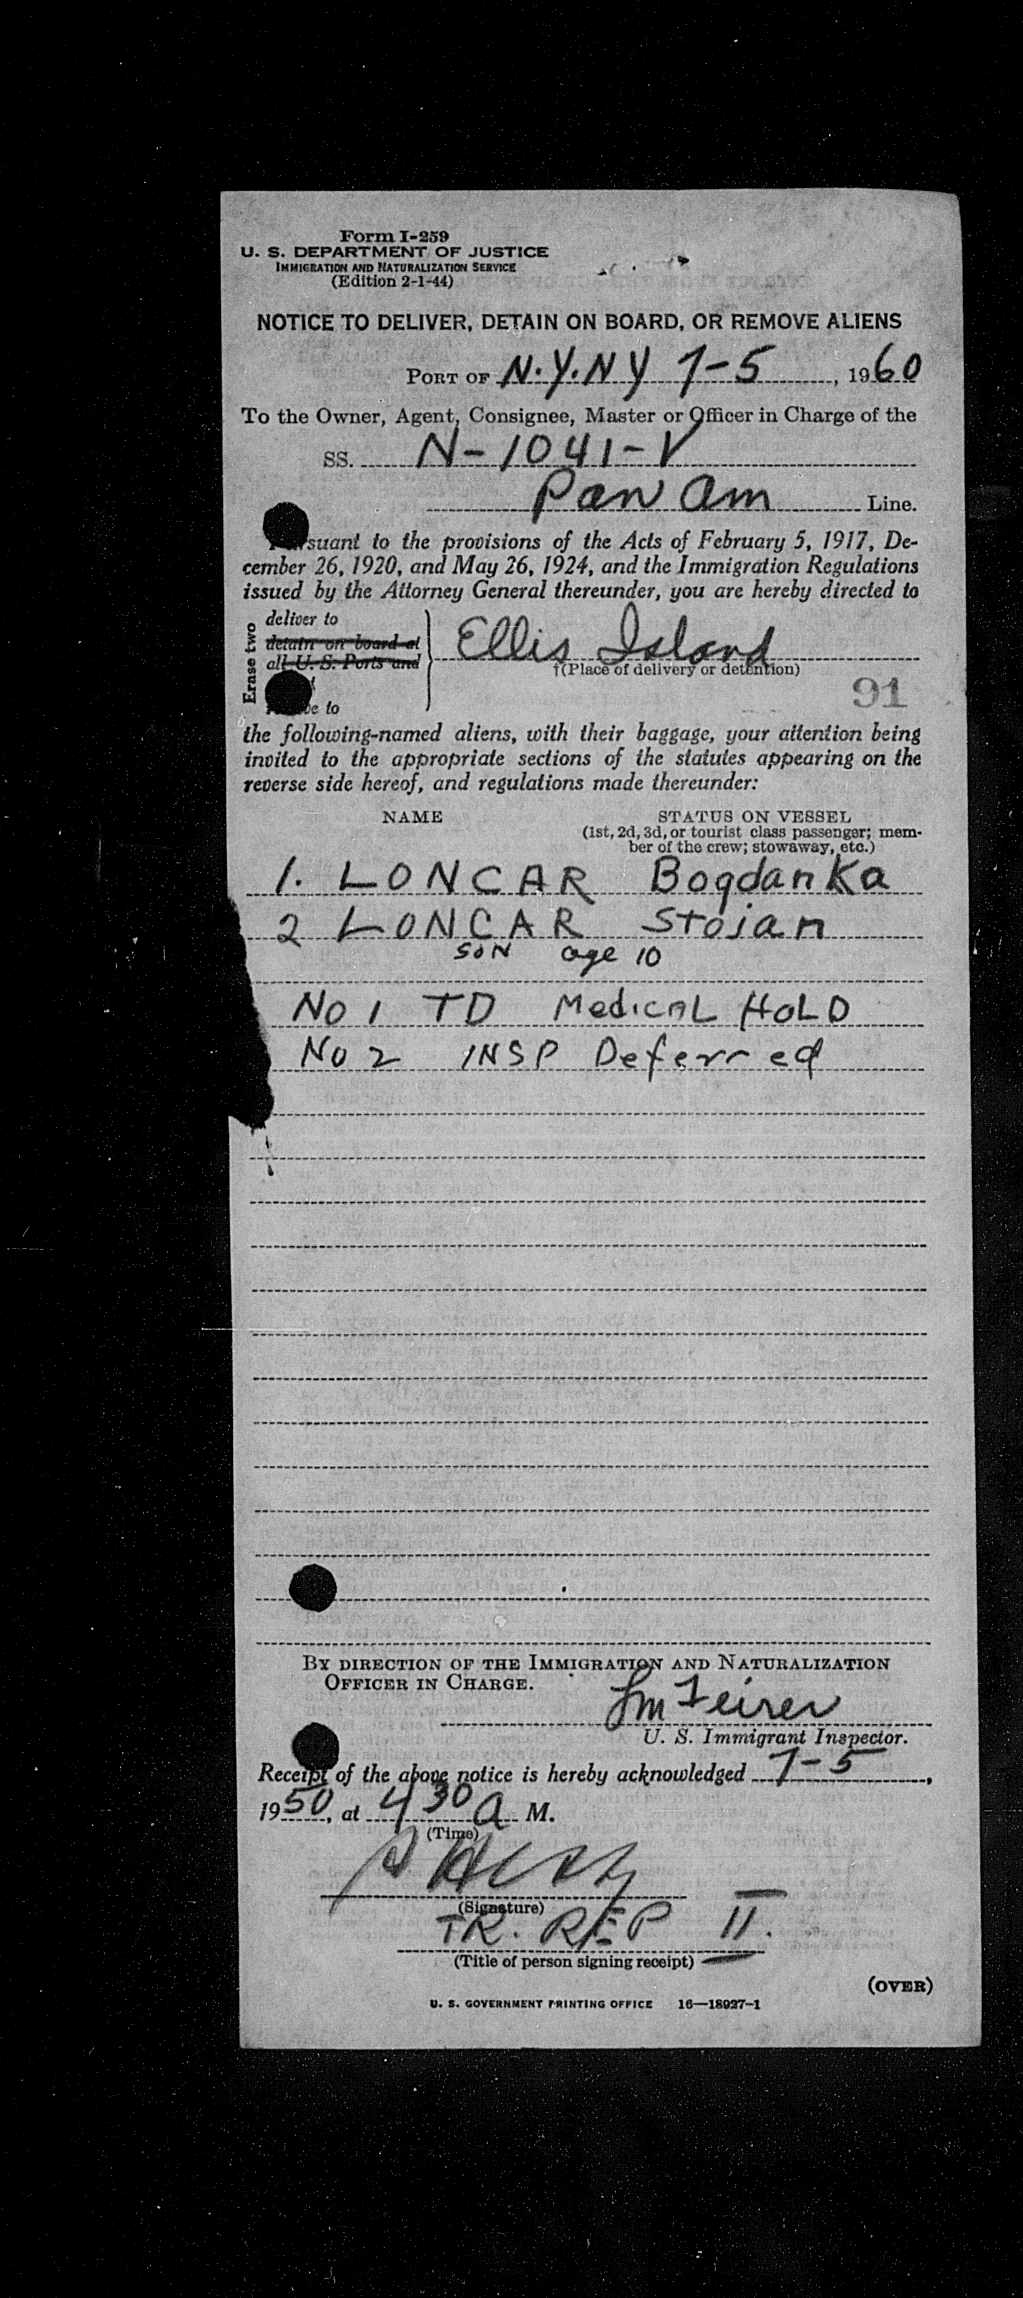 Form I-259
U. S. DEPARTMENT OF JUSTICE
IMMIGRATION AND NATURALIZATION SERVICE
(Edition 2-1-44)
NOTICE TO DELIVER, DETAIN ON BOARD, OR REMOVE ALIENS
PORT OF N.Y. NY 7-5, 1960
To the Owner, Agent, Consignee, Master or Officer in Charge of the
SS. N-1041-V
Pan Am Line.
Pursuant to the provisions of the Acts of February 5, 1917, De-
cember 26, 1920, and May 26, 1924, and the Immigration Regulations
issued by the Attorney General thereunder, you are hereby directed to
Erase two
deliver to
detain on board at
all U. S. Ports and
to
Ellis Island
†(Place of delivery or detention)
91
the following-named aliens, with their baggage, your attention being
invited to the appropriate sections of the statutes appearing on the
reverse side hereof, and regulations made thereunder:
NAME STATUS ON VESSEL
(1st, 2d, 3d, or tourist class passenger; mem-
ber of the crew; stowaway, etc.)
1. LONCAR Bogdanka
2 LONCAR Stojan
SON age 10
No 1 TD Medical HOLD
No 2 INSP Deferred
BY DIRECTION OF THE IMMIGRATION AND NATURALIZATION
OFFICER IN CHARGE.
U. S. Immigrant Inspector.
Receipt of the above notice is hereby acknowledged 7-5,
1950, at 4 30 a M.
(Time)
(Signature)
TR. REP II.
(Title of person signing receipt)
(OVER)
U. S. GOVERNMENT PRINTING OFFICE 16—18927-1